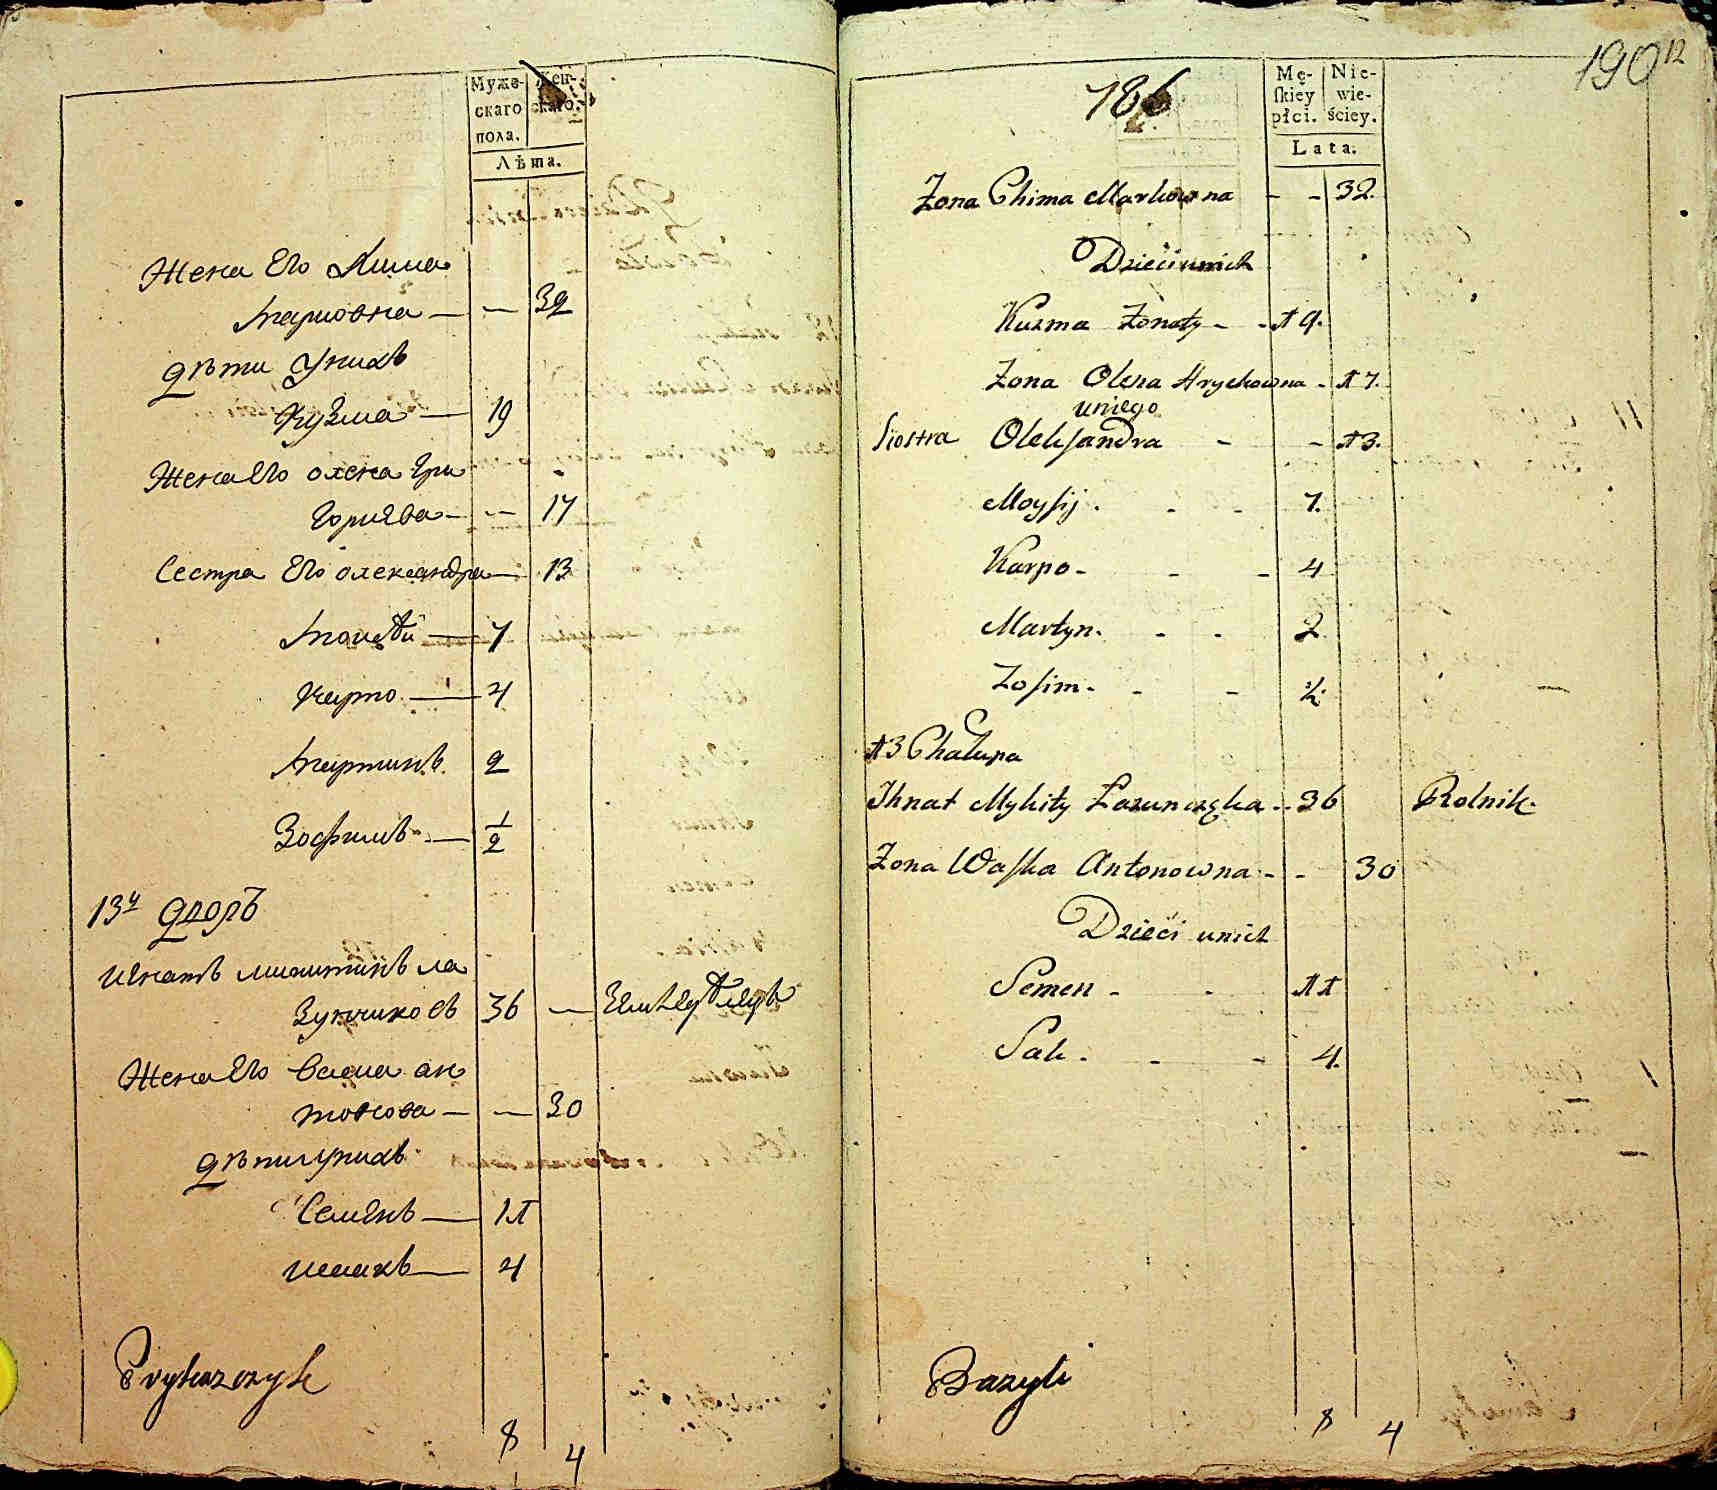 Муже-
скаго
пола.
Жен-
скаго.
Лѣта.
Жена Его Хима
Марковна — — 32
Дѣти Унихъ
Кузма — 19
Жена Его олена Гри
Горыева — — 17
Сестра Его олександра — 13
Моисей — 7
Карпо — 4
Мартинъ 2
Зосимъ — 1/2
13й Дворъ
Игнатъ микитинъ ла
Зунчиковъ 36 —
Жена Его васка ан
тонова — — 30
Дѣти унихъ
Семенъ — 11
исакъ — 4
Prykazczyk
8 4
190 12
186
Mę-
ſkiey
płci.
Nie-
wie-
ściey.
Lata.
Żona Chima Markowna - - 32.
Dzieci unich
Kuzma Żonaty - - 19.
Żona Olena Hryckowna - 17.
uniego
Siostra Olekſandra - - 13.
Moyſij . - - 7.
Karpo - - - 4
Martyn. - - 2
Zoſim - - - 1/2.
13 Chałupa
Ihnat Mykity Łazunczęka - - 36 Rolnik.
Żona Waſka Antonowna - - 30
Dzieci unich
Semen - - 11
Sak. - - 4.
Bazyli
8 4